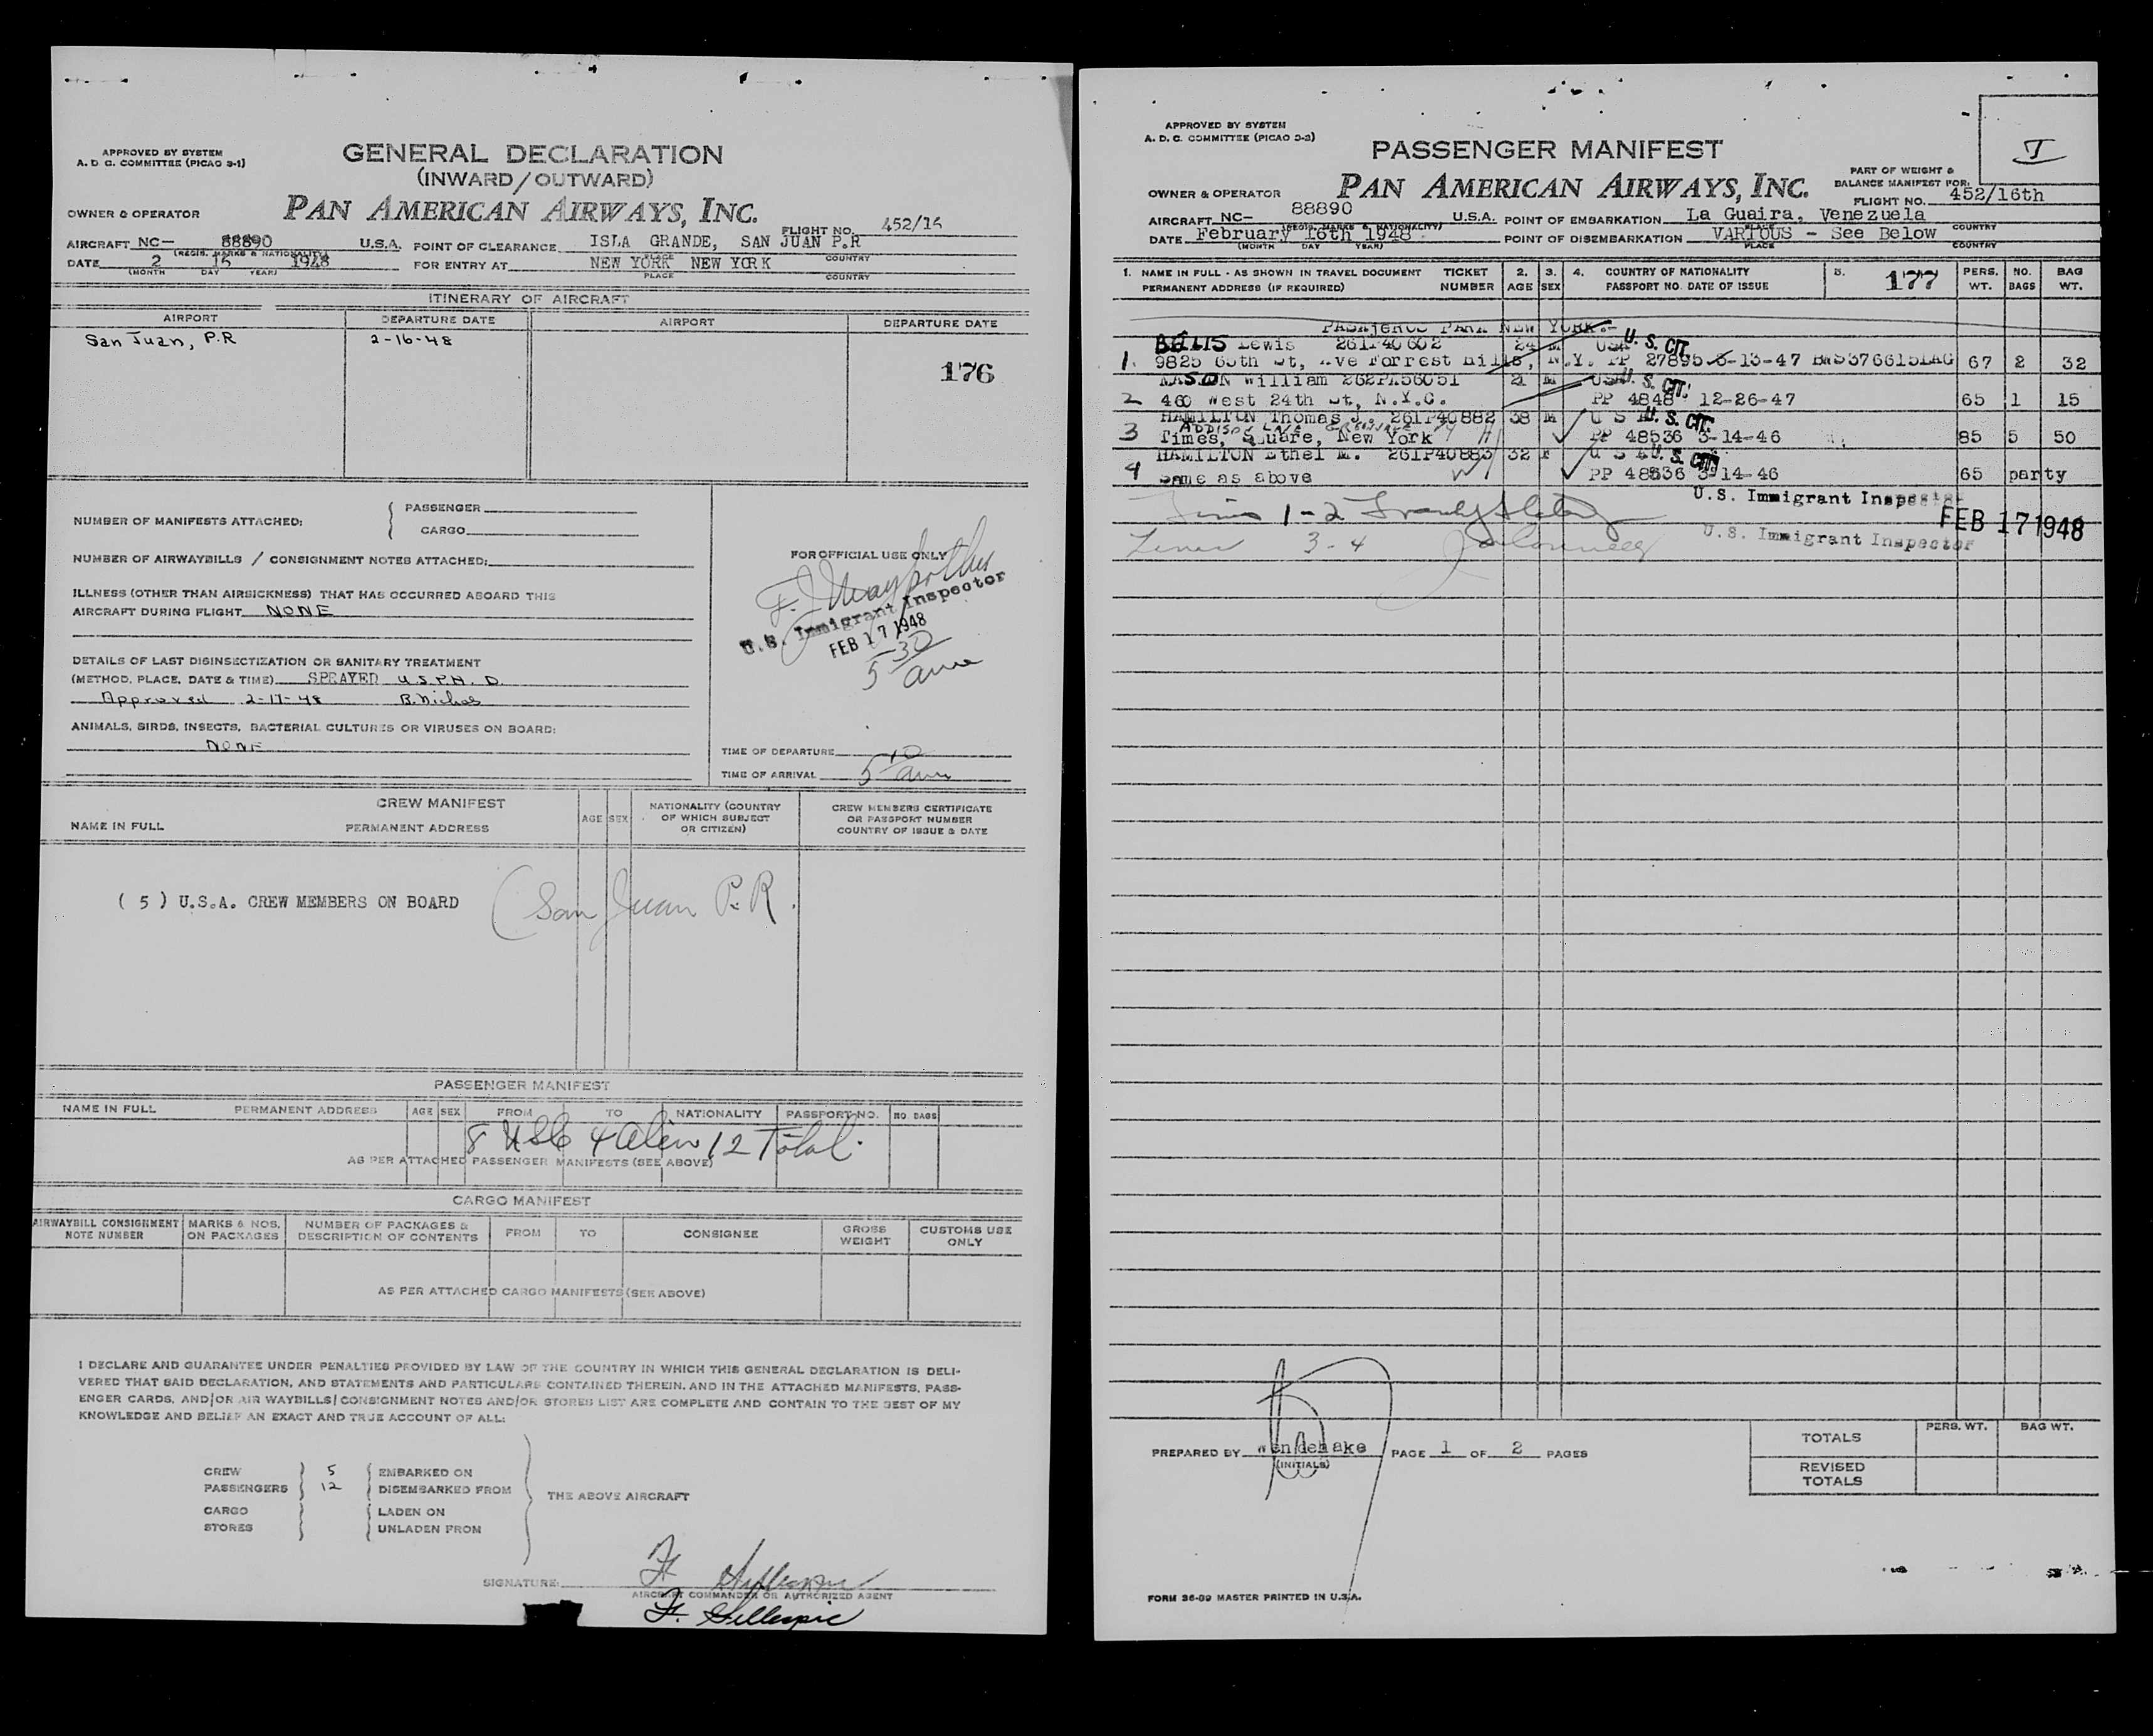 APPROVED BY SYSTEM
A. D. C. COMMITTEE (PICAO 3-1)
GENERAL DECLARATION
(INWARD/OUTWARD)
OWNER & OPERATOR
PAN AMERICAN AIRWAYS, INC.
FLIGHT NO. 452/16
AIRCRAFT NC- 88890 U.S.A. POINT OF CLEARANCE ISLA GRANDE, SAN JUAN P.R
(REGIS. MARKS & NATIONALITY) PLACE COUNTRY
DATE 2 16 1948 FOR ENTRY AT NEW YORK NEW YORK
(MONTH DAY YEAR) PLACE COUNTRY
ITINERARY OF AIRCRAFT
AIRPORT DEPARTURE DATE AIRPORT DEPARTURE DATE
San Juan, P.R 2-16-48
176
NUMBER OF MANIFESTS ATTACHED: PASSENGER
CARGO
NUMBER OF AIRWAYBILLS / CONSIGNMENT NOTES ATTACHED:
ILLNESS (OTHER THAN AIRSICKNESS) THAT HAS OCCURRED ABOARD THIS
AIRCRAFT DURING FLIGHT NONE
DETAILS OF LAST DISINSECTIZATION OR SANITARY TREATMENT
(METHOD, PLACE, DATE & TIME) SPRAYED U.S.P.H.D.
Approved 2-17-48 B. Nichos
ANIMALS, BIRDS, INSECTS, BACTERIAL CULTURES OR VIRUSES ON BOARD:
NONE
FOR OFFICIAL USE ONLY
U.S. Immigrant Inspector
FEB 17 1948
5 30
am
TIME OF DEPARTURE
TIME OF ARRIVAL 5 10 am
CREW MANIFEST
NAME IN FULL PERMANENT ADDRESS
AGE SEX
NATIONALITY (COUNTRY
OF WHICH SUBJECT
OR CITIZEN)
CREW MEMBERS CERTIFICATE
OR PASSPORT NUMBER
COUNTRY OF ISSUE & DATE
( 5 ) U.S.A. CREW MEMBERS ON BOARD (San Juan P.R.
PASSENGER MANIFEST
NAME IN FULL PERMANENT ADDRESS AGE SEX FROM TO NATIONALITY PASSPORT NO. NO. BAGS
8 USC 4 alien 12 Total.
AS PER ATTACHED PASSENGER MANIFESTS (SEE ABOVE)
CARGO MANIFEST
AIRWAYBILL CONSIGNMENT
NOTE NUMBER
MARKS & NOS.
ON PACKAGES
NUMBER OF PACKAGES &
DESCRIPTION OF CONTENTS
FROM TO CONSIGNEE
GROSS
WEIGHT
CUSTOMS USE
ONLY
AS PER ATTACHED CARGO MANIFESTS (SEE ABOVE)
I DECLARE AND GUARANTEE UNDER PENALTIES PROVIDED BY LAW OF THE COUNTRY IN WHICH THIS GENERAL DECLARATION IS DELI-
VERED THAT SAID DECLARATION, AND STATEMENTS AND PARTICULARS CONTAINED THEREIN, AND IN THE ATTACHED MANIFESTS, PASS-
ENGER CARDS, AND/OR AIR WAYBILLS/CONSIGNMENT NOTES AND/OR STORES LIST ARE COMPLETE AND CONTAIN TO THE BEST OF MY
KNOWLEDGE AND BELIEF AN EXACT AND TRUE ACCOUNT OF ALL:
CREW 5 EMBARKED ON
PASSENGERS 12 DISEMBARKED FROM
THE ABOVE AIRCRAFT
CARGO LADEN ON
STORES UNLADEN FROM
SIGNATURE: F. Gillespie
AIRCRAFT COMMANDER OR AUTHORIZED AGENT
F. Gillespie
APPROVED BY SYSTEM
A. D. C. COMMITTEE (PICAO 3-2)
PASSENGER MANIFEST
I
PART OF WEIGHT &
BALANCE MANIFEST FOR:
OWNER & OPERATOR PAN AMERICAN AIRWAYS, INC.
FLIGHT NO. 452/16th
AIRCRAFT NC- 88890 U.S.A. POINT OF EMBARKATION La Guaira, Venezuela
(REGIS. MARKS & NATIONALITY) PLACE COUNTRY
DATE February 16th 1948 POINT OF DISEMBARKATION VARIOUS - See Below
(MONTH DAY YEAR) PLACE COUNTRY
1. NAME IN FULL - AS SHOWN IN TRAVEL DOCUMENT TICKET 2. 3. 4. COUNTRY OF NATIONALITY 5. 177 PERS. NO. BAG
PERMANENT ADDRESS (IF REQUIRED) NUMBER AGE SEX PASSPORT NO. DATE OF ISSUE WT. BAGS WT.
PASAJEROS PARA NEW YORK.-
Lewis 261P40602 24 M USA U. S. CIT.
1. 9825 65th St, Ave Forrest Hills, N.Y. PP 27895 8-13-47 67 2 32
MASON William 21 M USA U. S. CIT.
2 460 West 24th St, N.Y.C. PP 4848 12-26-47 65 1 15
HAMILTON Thomas J. 261P40882 38 M U S A U. S. CIT.
3 Times, Square, New York PP 48536 3-14-46 85 5 50
HAMILTON Ethel M. 261P40883 32 F U S A U. S. CIT.
4 Same as above PP 48536 3-14-46 65 party
Lines 1-2
U.S. Immigrant Inspector
FEB 17 1948
Lines 3-4
U.S. Immigrant Inspector
PREPARED BY Wendehake PAGE 1 OF 2 PAGES
(INITIALS)
PERS. WT. BAG WT.
TOTALS
REVISED
TOTALS
FORM 36-09 MASTER PRINTED IN U.S.A.